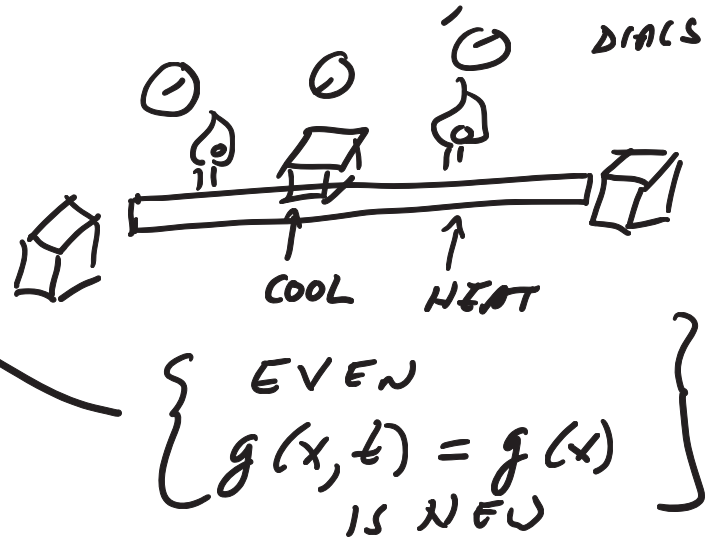 DIALS
COOL
HEAT
EVEN
g(x,t) = g(x)
IS NEW